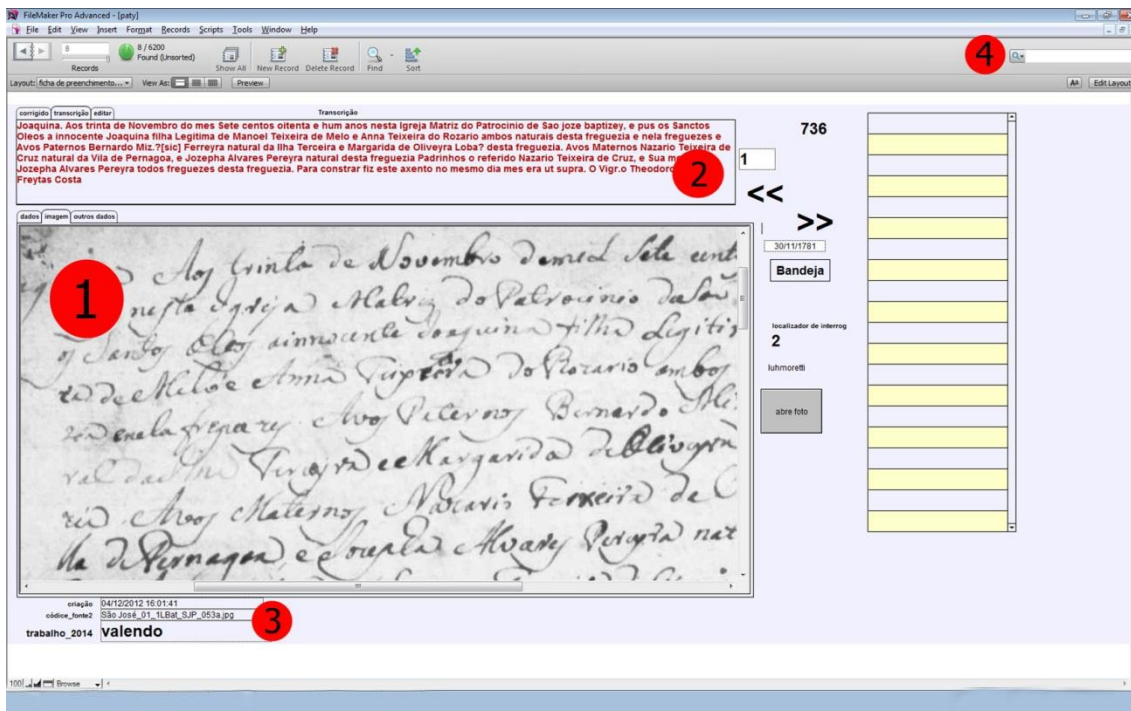 FileMaker Pro Advanced - [paty]
File Edit View Insert Format Records Scripts Tools Window Help
8
8 / 6200
Found (Unsorted)
Records
Show All New Record Delete Record Find Sort
4
Layout: ficha de preenchimento... View As: Preview
Aa Edit Layout
corrigido transcrição editar
Transcrição
Joaquina. Aos trinta de Novembro do mes Sete centos oitenta e hum anos nesta Igreja Matriz do Patrocinio de Sao joze baptizey, e pus os Sanctos
Oleos a innocente Joaquina filha Legitima de Manoel Teixeira de Melo e Anna Teixeira do Rozario ambos naturais desta freguezia e nela freguezes e
Avos Paternos Bernardo Miz.?[sic] Ferreyra natural da Ilha Terceira e Margarida de Oliveyra Loba? desta freguezia. Avos Maternos Nazario Teixeira de
Cruz natural da Vila de Pernagoa, e Jozepha Alvares Pereyra natural desta freguezia Padrinhos o referido Nazario Teixeira de Cruz, e Sua
Jozepha Alvares Pereyra todos freguezes desta freguezia. Para constrar fiz este axento no mesmo dia mes era ut supra. O Vigr.o
Freytas Costa
2
736
1
<<
>>
30/11/1781
Bandeja
localizador de interrog
2
luhmoretti
abre foto
dados imagem outros dados
1
Aos trinta de Novembro do mes Sete cent
nesta Igreja Matriz do Patrocinio de Sao
os Santos Oleos a innocente Joaquina filha Legiti
ra de Melo e Anna Teixeira do Rozario ambos
e nela freguezes. Avos Paternos Bernardo
Terceyra e Margarida de Oliveyra
Avos Maternos Nazario Teixeira de C
la de Pernagoa, e Jozepha Alvares Pereyra nat
criação 04/12/2012 16:01:41
códice_fonte2 São José_01_1LBat_SJP_053a.jpg
trabalho_2014 valendo
3
100 Browse